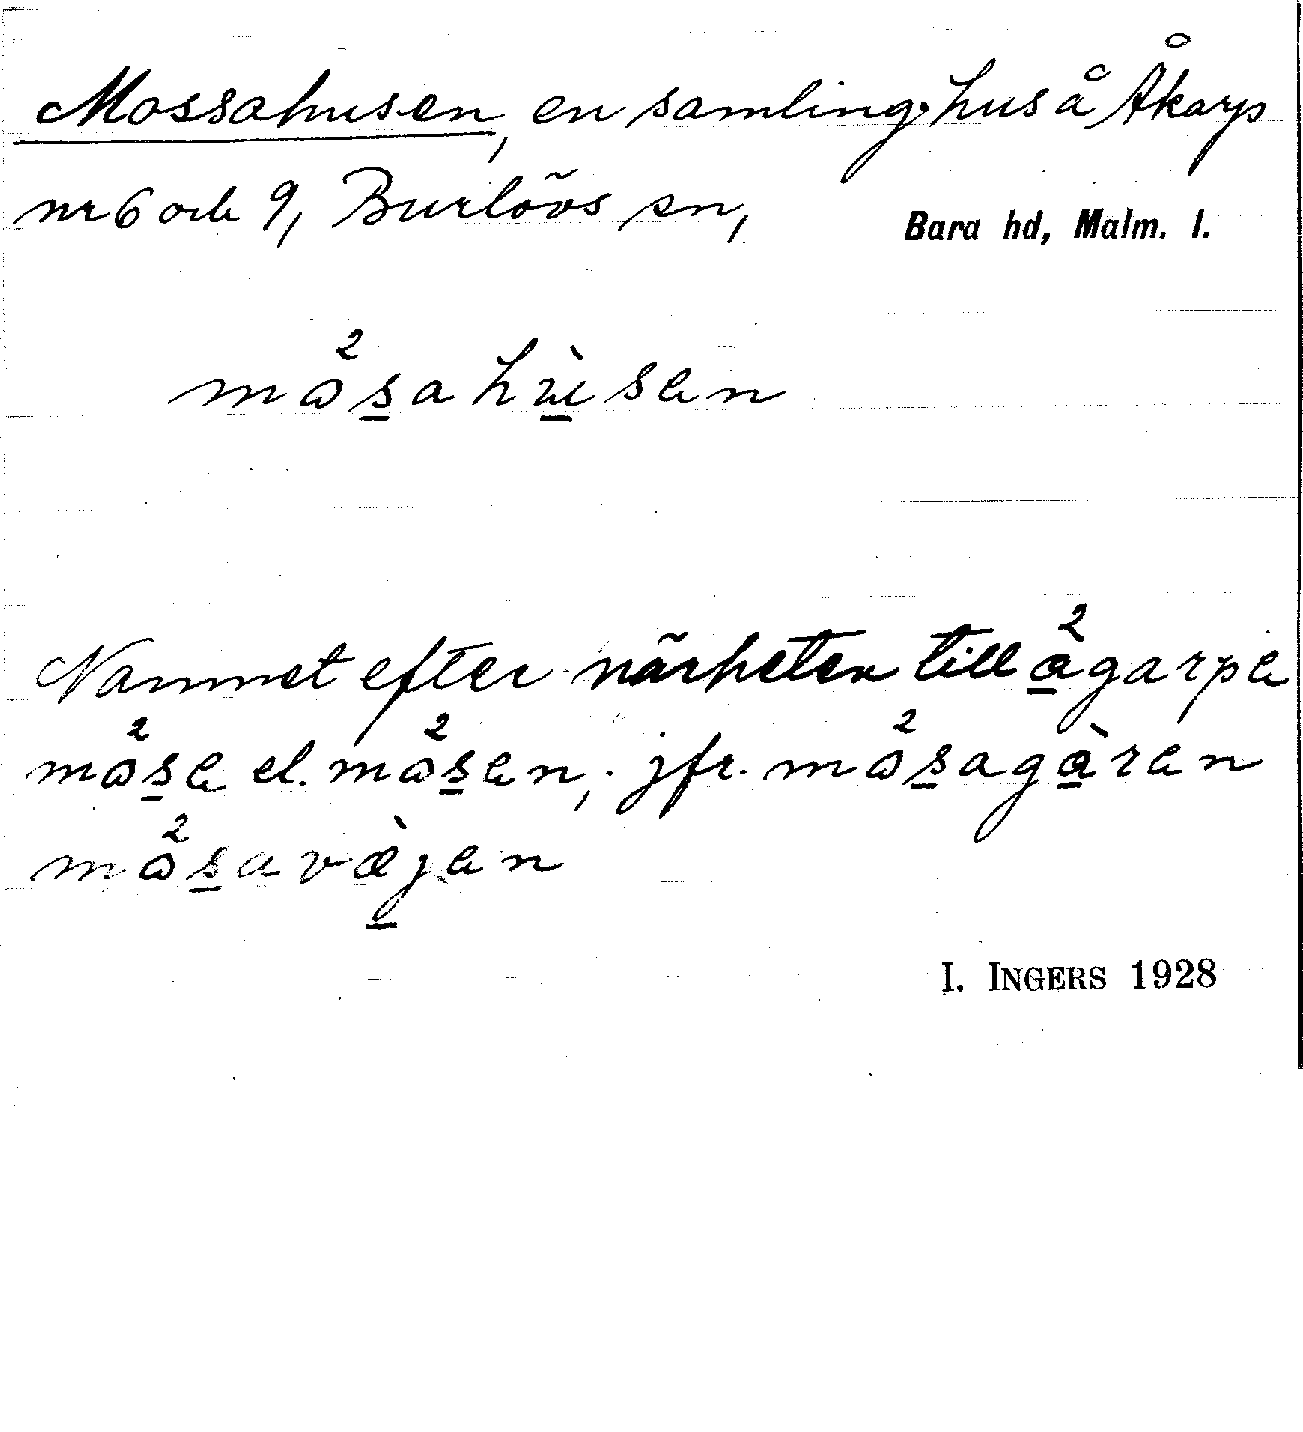 Mossahusen, en samling hus å Åkarps
nr 6 och 9, Burlövs sn, Bara hd, Malm. l.
mɷ²s̲ahù̲sen
Namnet efter närheten till a̲²garpa
mɷ²s̲a el. mɷ²s̲en, jfr. mɷ²s̲agà̲ren
mɷ²s̲avæ̲̀jen
I. INGERS 1928